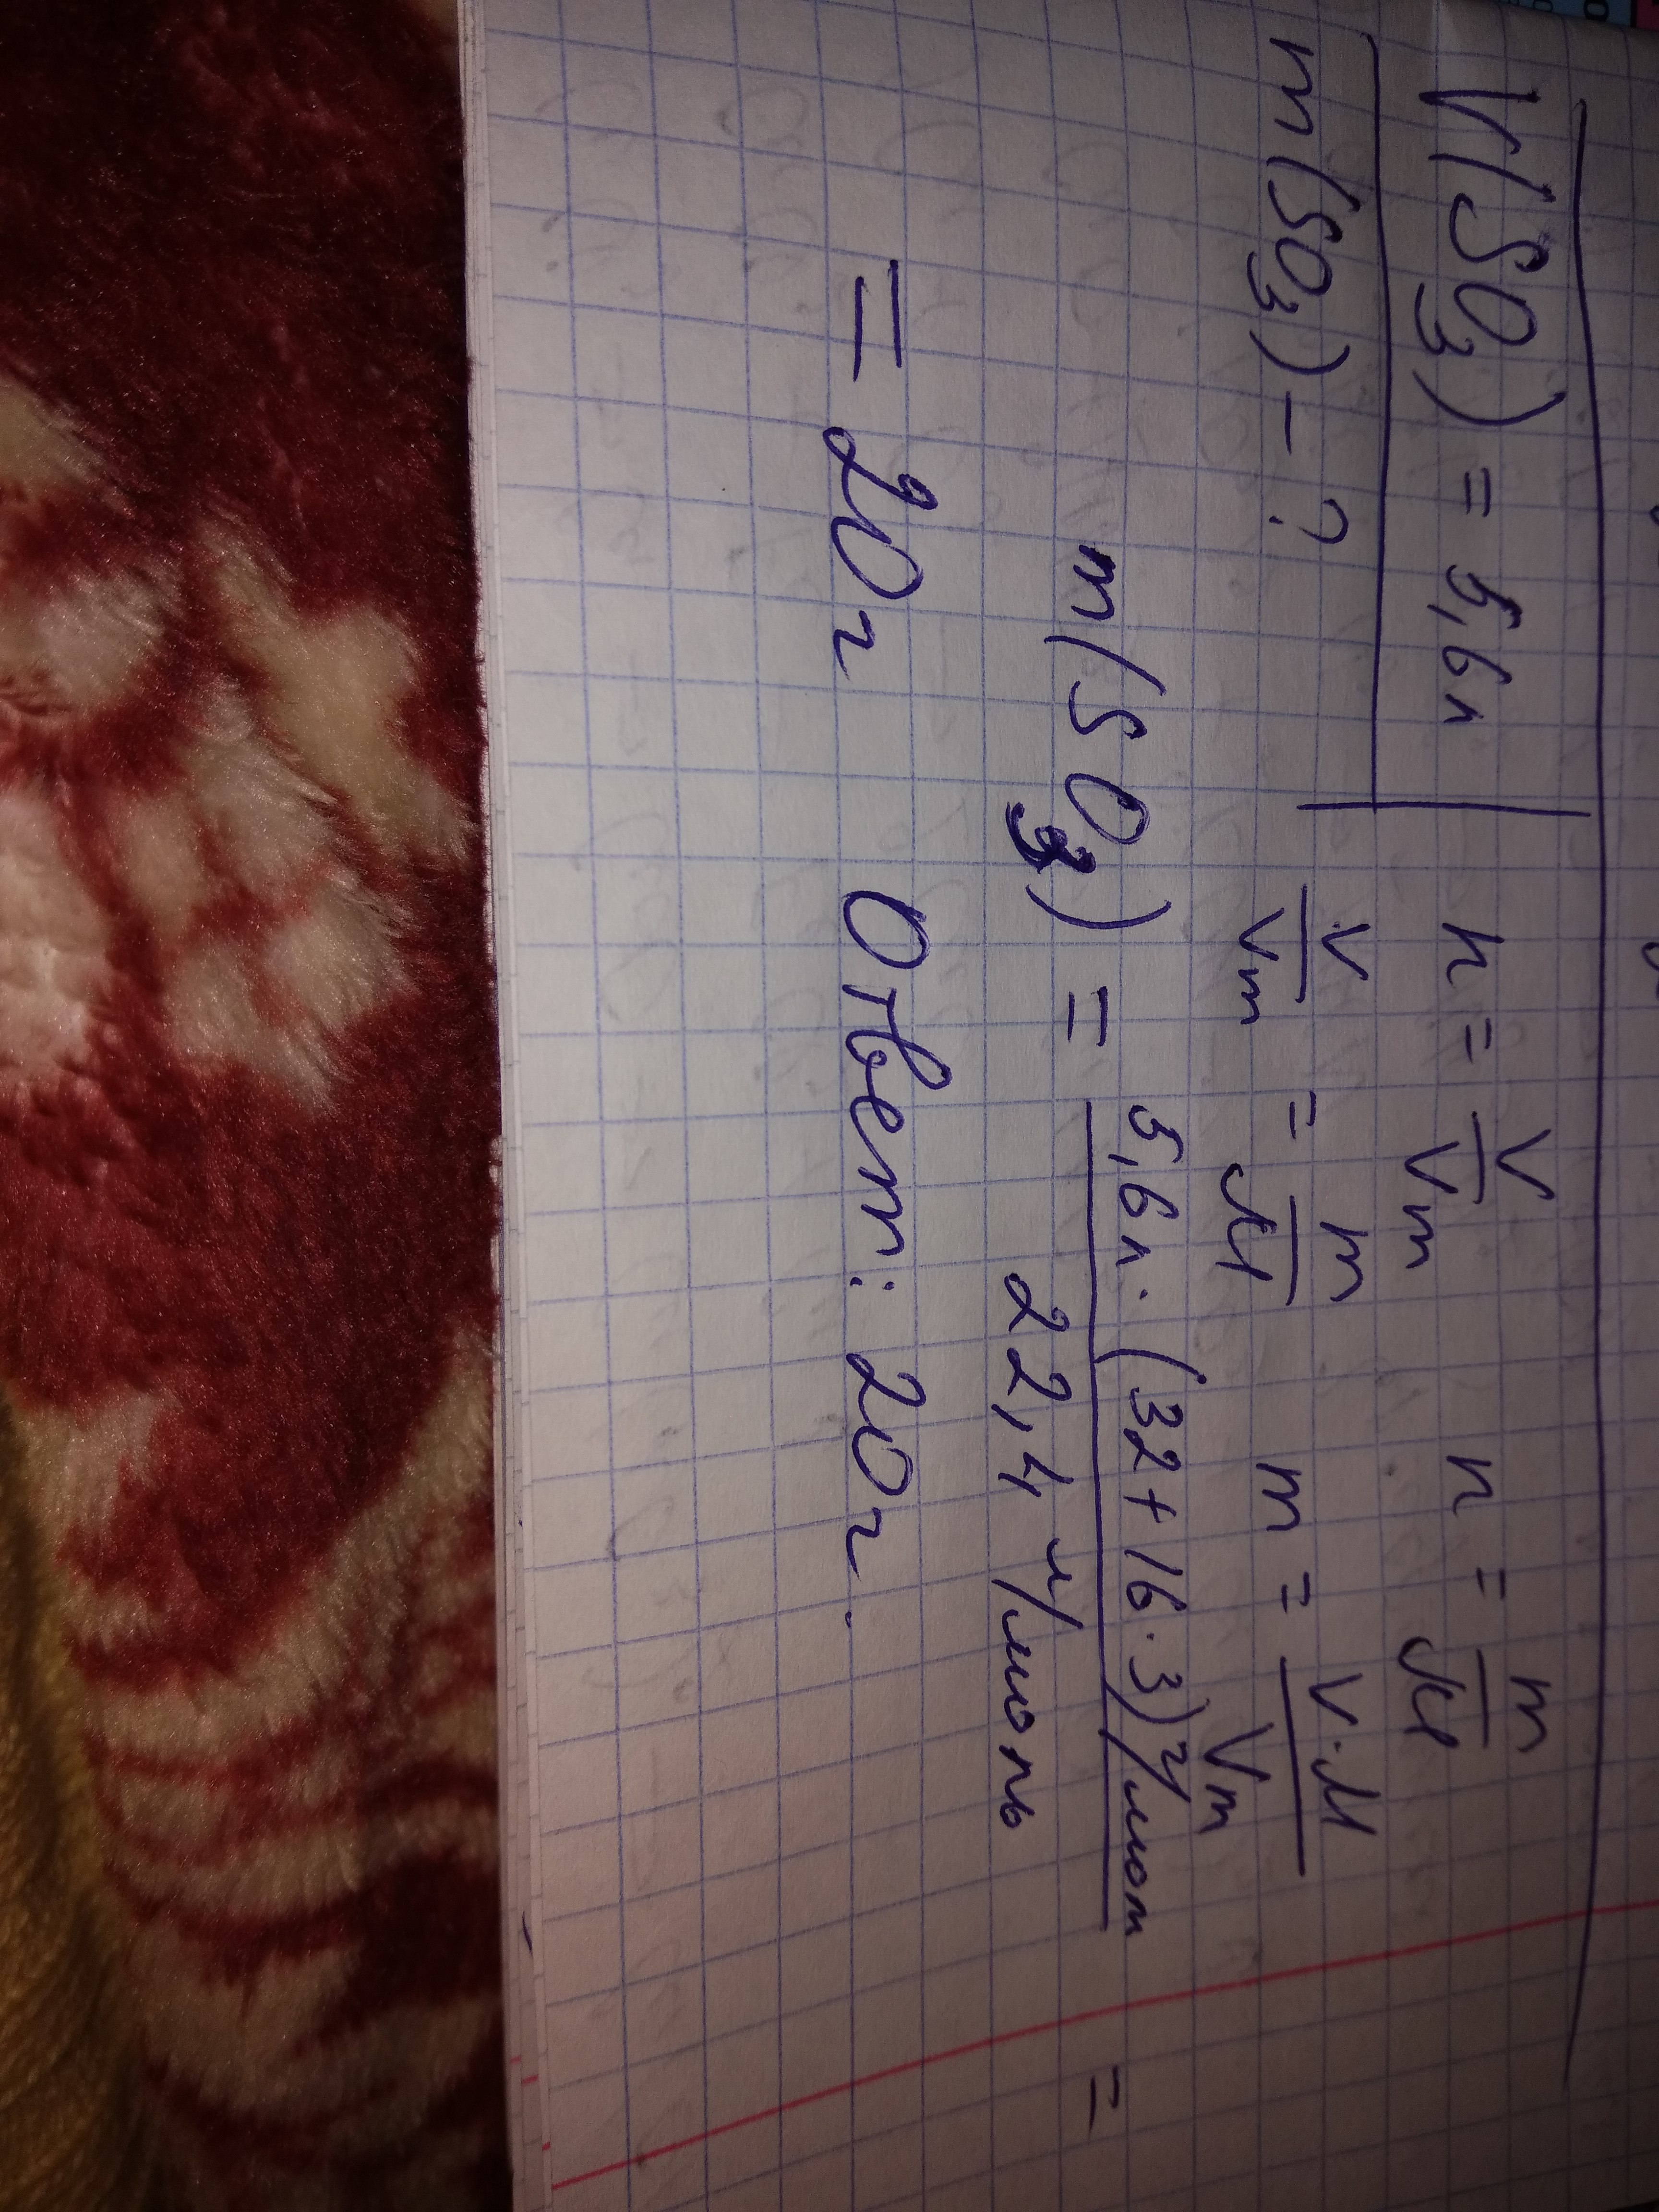 V(SO₃) = 5,6л
n = V/Vm n = m/M
m(SO₃) - ?
V/Vm = m/M m = V·M/Vm
m(SO₃) = 5,6л·(32+16·3)г/мол / 22,4 л/моль =
= 20г Ответ: 20г.